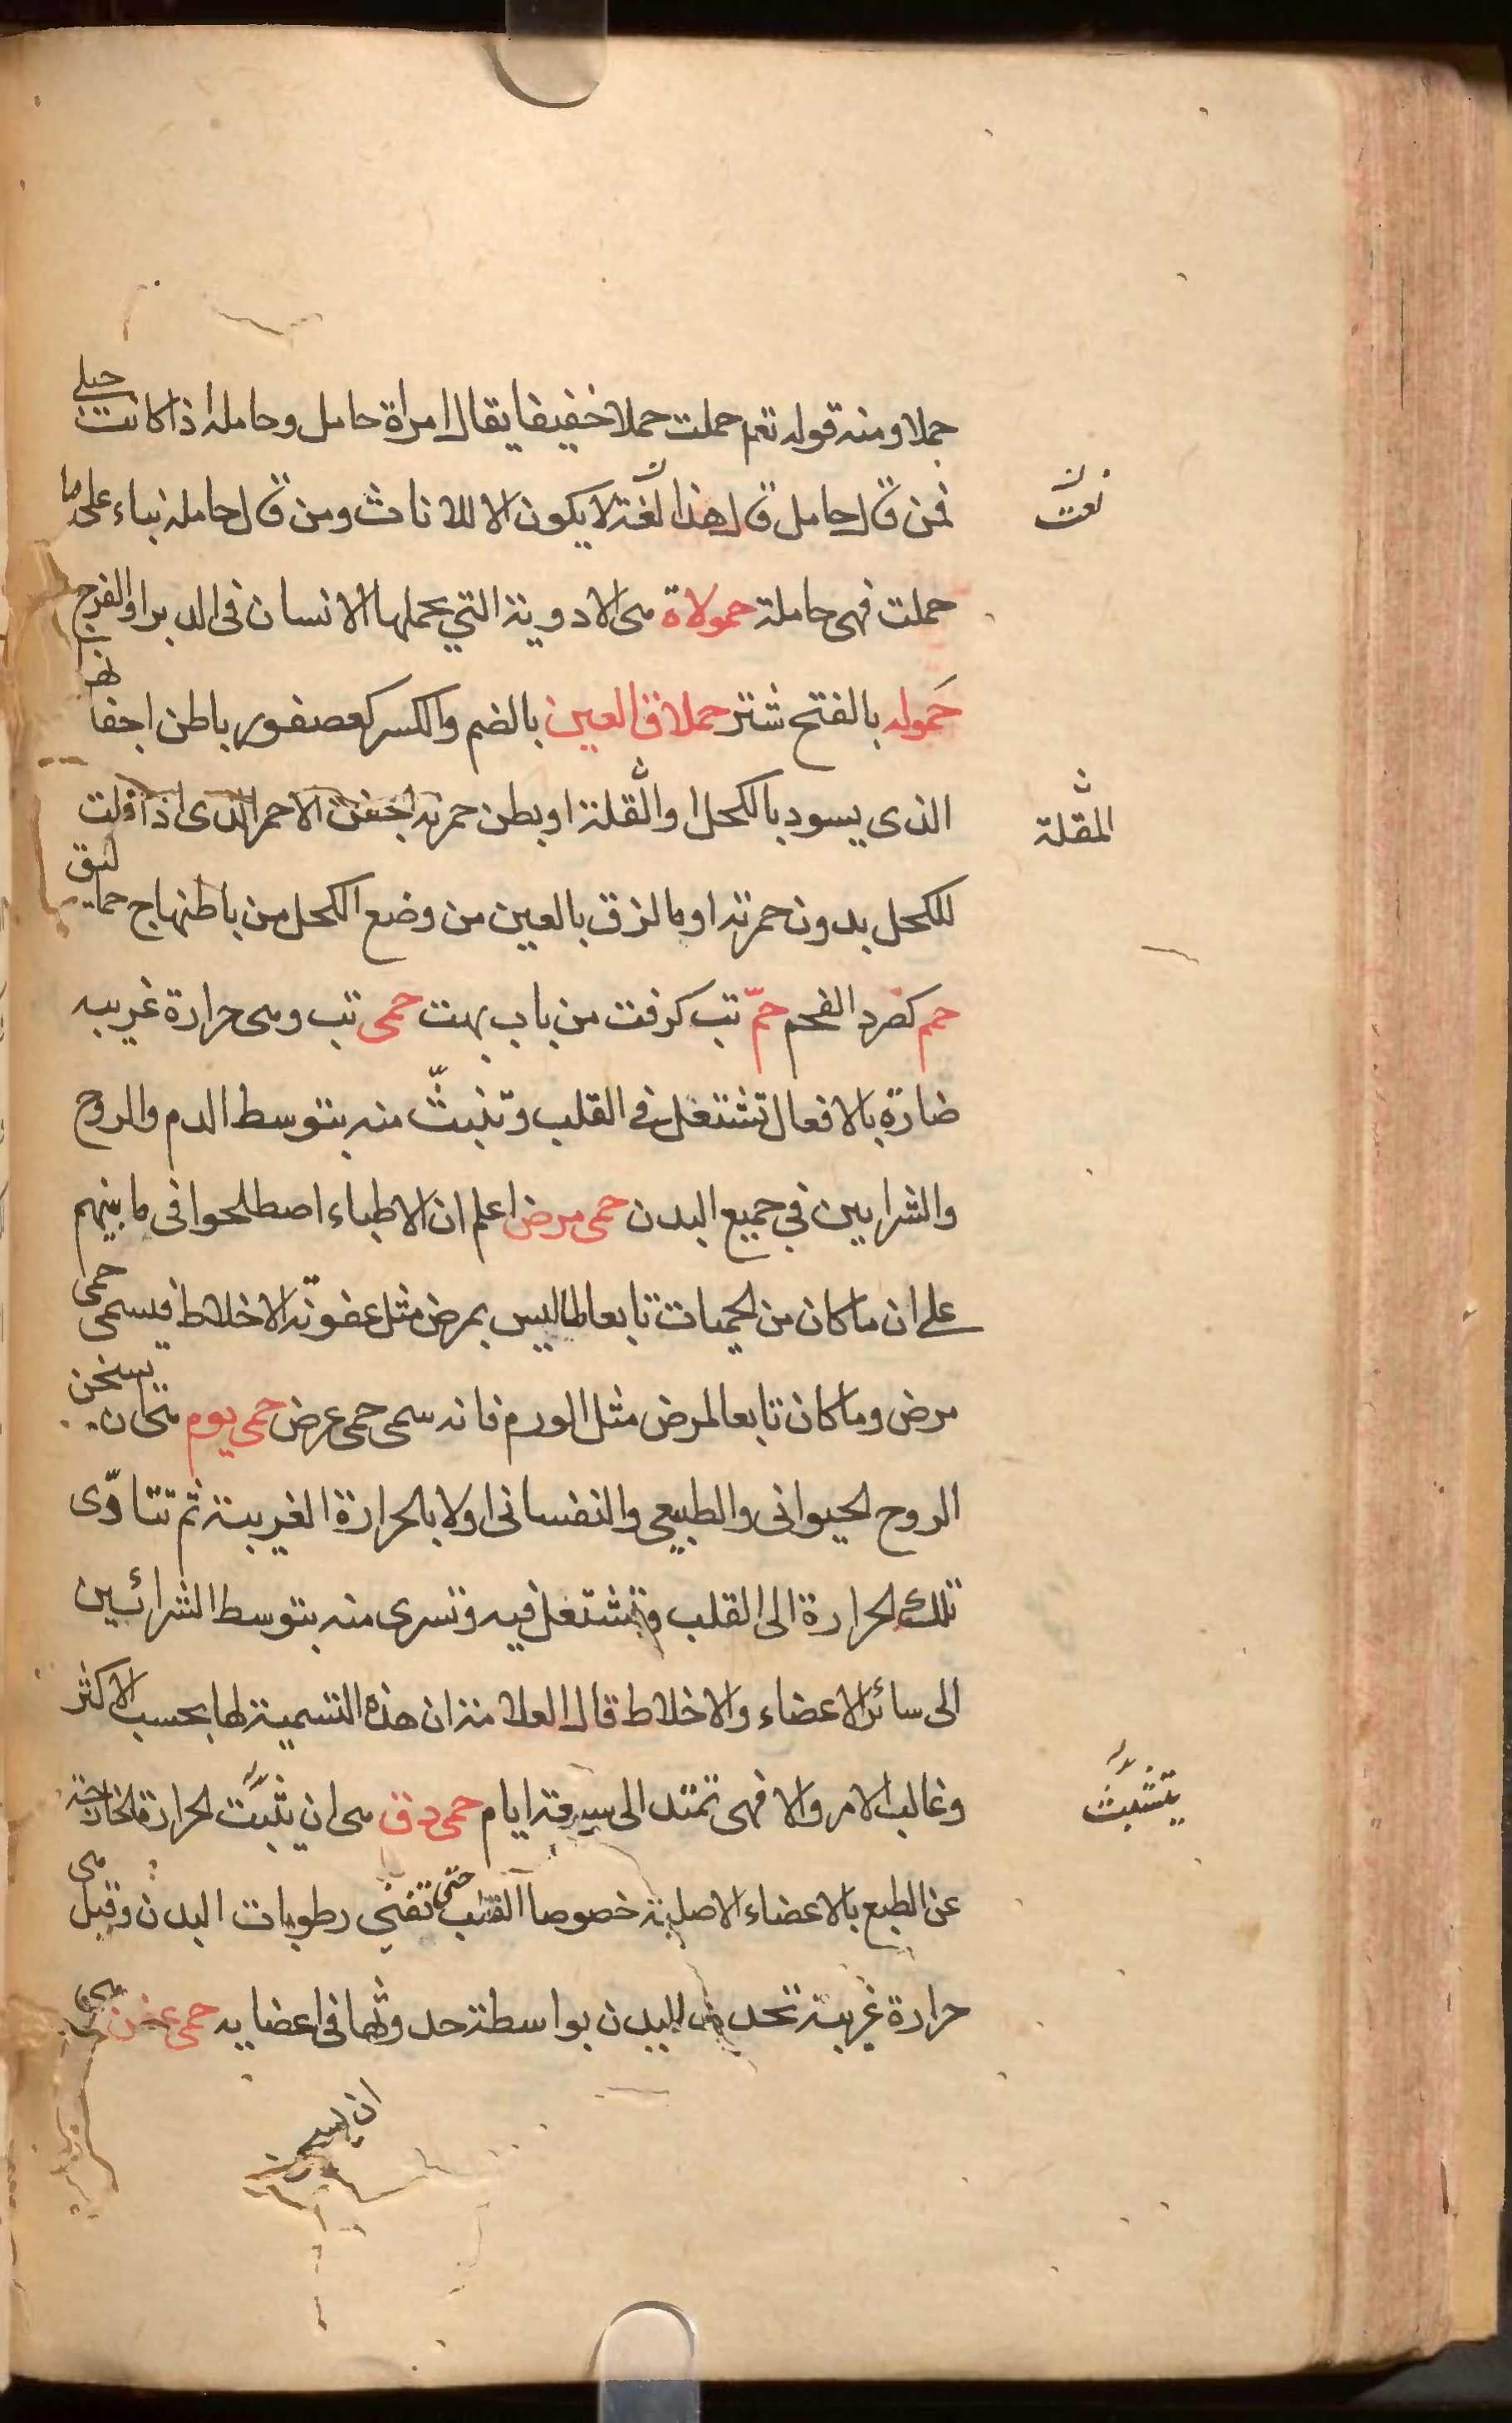 حملا ومنه قوله تعم حملت حملا خفيفا يقال امراة حامل وحامله اذا كانت حبلى
فمن قال حامل قال هذا لغة لا يكون الا للاناث ومن قال حاملة بناء على ما
نعت
حملت فهى حاملة حمولاة هى الادوية التي يحملها الانسان فى الدبر او الفرج
حَموله بالفتح شتر حملاق العين بالضم والكسر كعصفور باطن اجفانها
الذى يسود بالكحل او القلة او بطن حمرته اجفن الاحمر الذى اذا قلت
المقلة
للكحل بدون حمرته او ما لزق بالعين من وضع الكحل من باطنها ج حماليق
حم كصرد الفحم حمّ تب كرفت من باب بهت حمى تب وهى حرارة غريبه
ضارة بالافعال تشتغل فى القلب وتنبثّ منه بتوسط الدم والروح
والشرايين في جميع البدن حمى مرض اعلم ان الاطباء اصطلحوا فى ما بينهم
على ان ما كان من الحميات تابعا لما ليس بمرض مثل عفونة الاخلاط فيسمى حمى
مرض وما كان تابعا لمرض مثل الورم فانه سمى حمى عرض حمى يوم هى ان يسخن
الروح الحيوانى والطبيعى والنفسانى اولا بالحرارة الغريبة ثم تتادّى
تلك الحرارة الى القلب وتشتغل فيه وتسرى منه بتوسط الشرائين
الى سائر الاعضاء والاخلاط قال العلامة ان هذه التسمية لها بحسب الاكثر
وغالب الامر والا فهى تمتد الى سبعة ايام حمى دق هى ان يثبت الحرارة الخارجة
يتشبث
عن الطبع بالاعضاء الاصلية خصوصا القلب حتى تفنى رطوبات البدن وقيل هى
حرارة غريبة تحدث للبدن بواسطة حدوثها فى اعضايه حمى عفن هى
ان يسخن